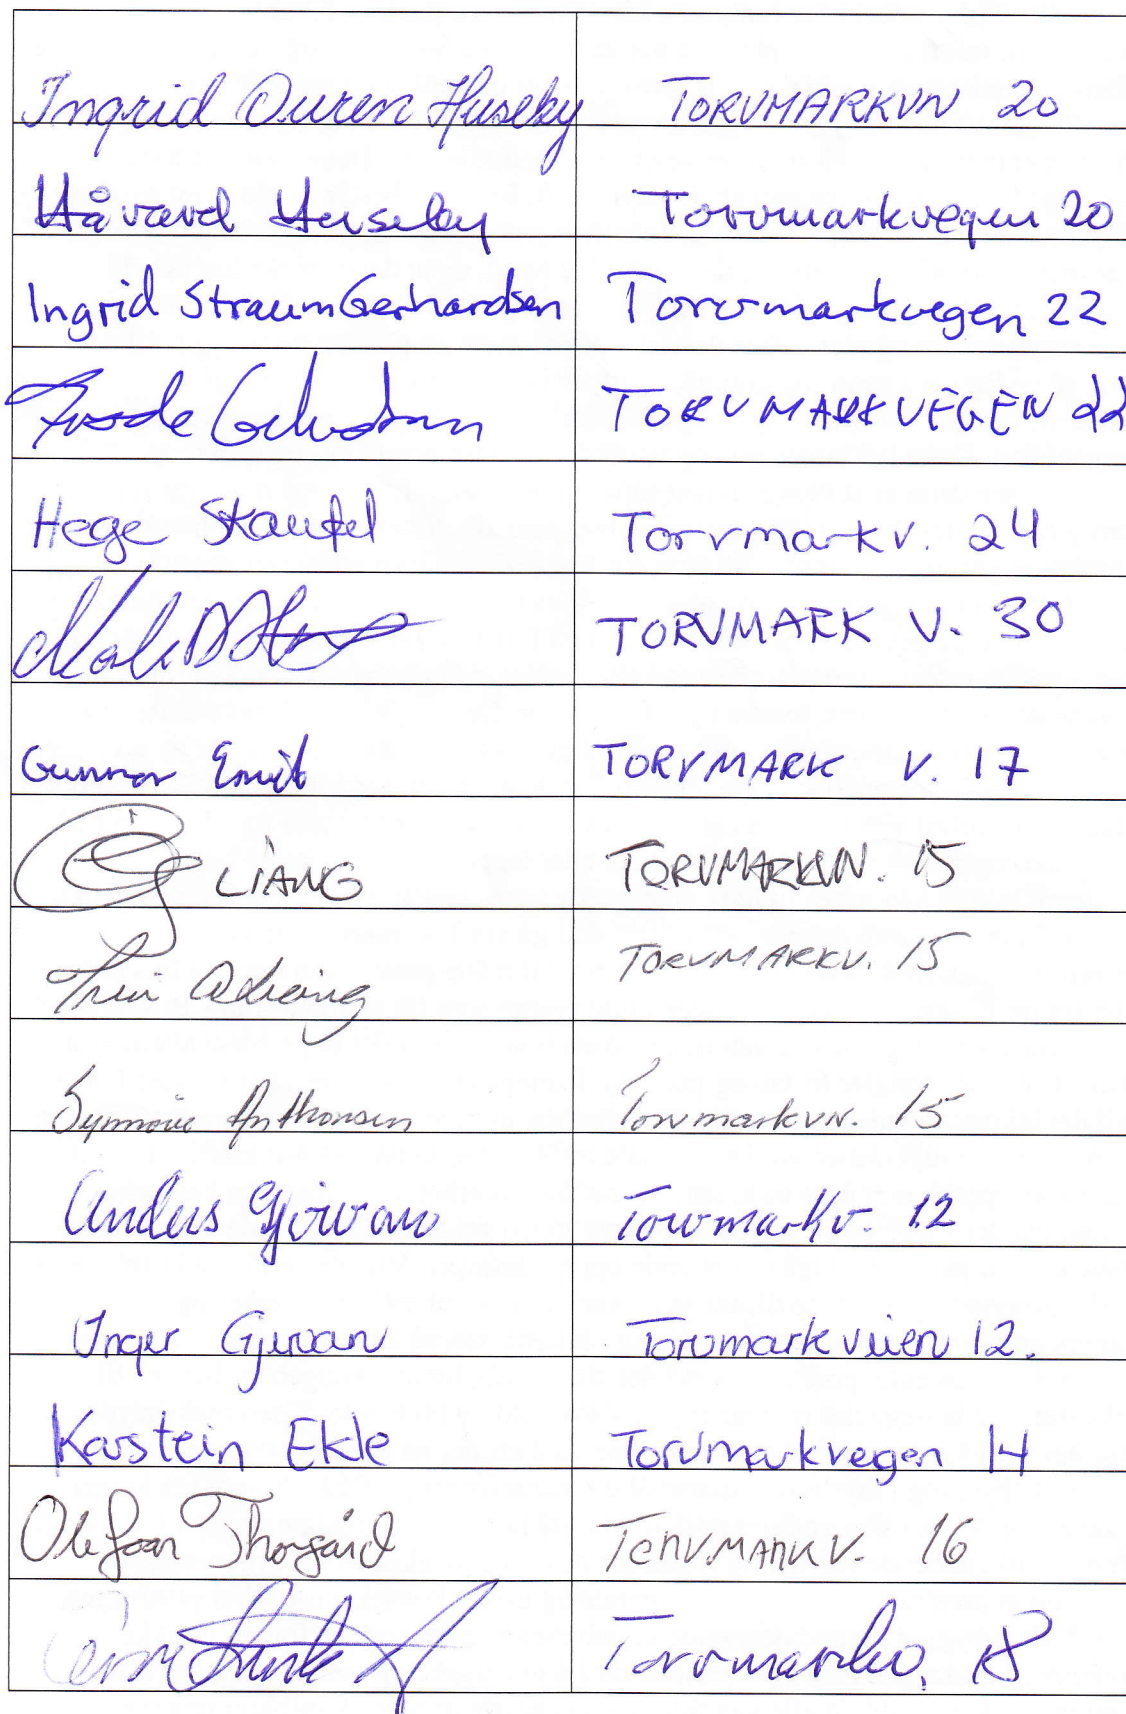 Ingrid Duren Huseby TORVMARKVN 20
Håvard Huseby Torvmarkvegen 20
Ingrid Straum Gerhardsen Torvmarkvegen 22
Frode TORVMARKVEGEN 22
Hege Torvmarkv. 24
TORVMARK V. 30
Gunnar Emil TORVMARK V. 17
LIANG TORVMARKVN. 15
TORVMARKV. 15
Synnøve Anthonsen Torvmarkvn. 15
Anders Torvmarkv. 12
Inger Gjervan Torvmarkveien 12.
Karstein Ekle Torvmarkvegen 14
Ole Joar Thorgård TORVMARKV. 16
Torvmarkv. 18